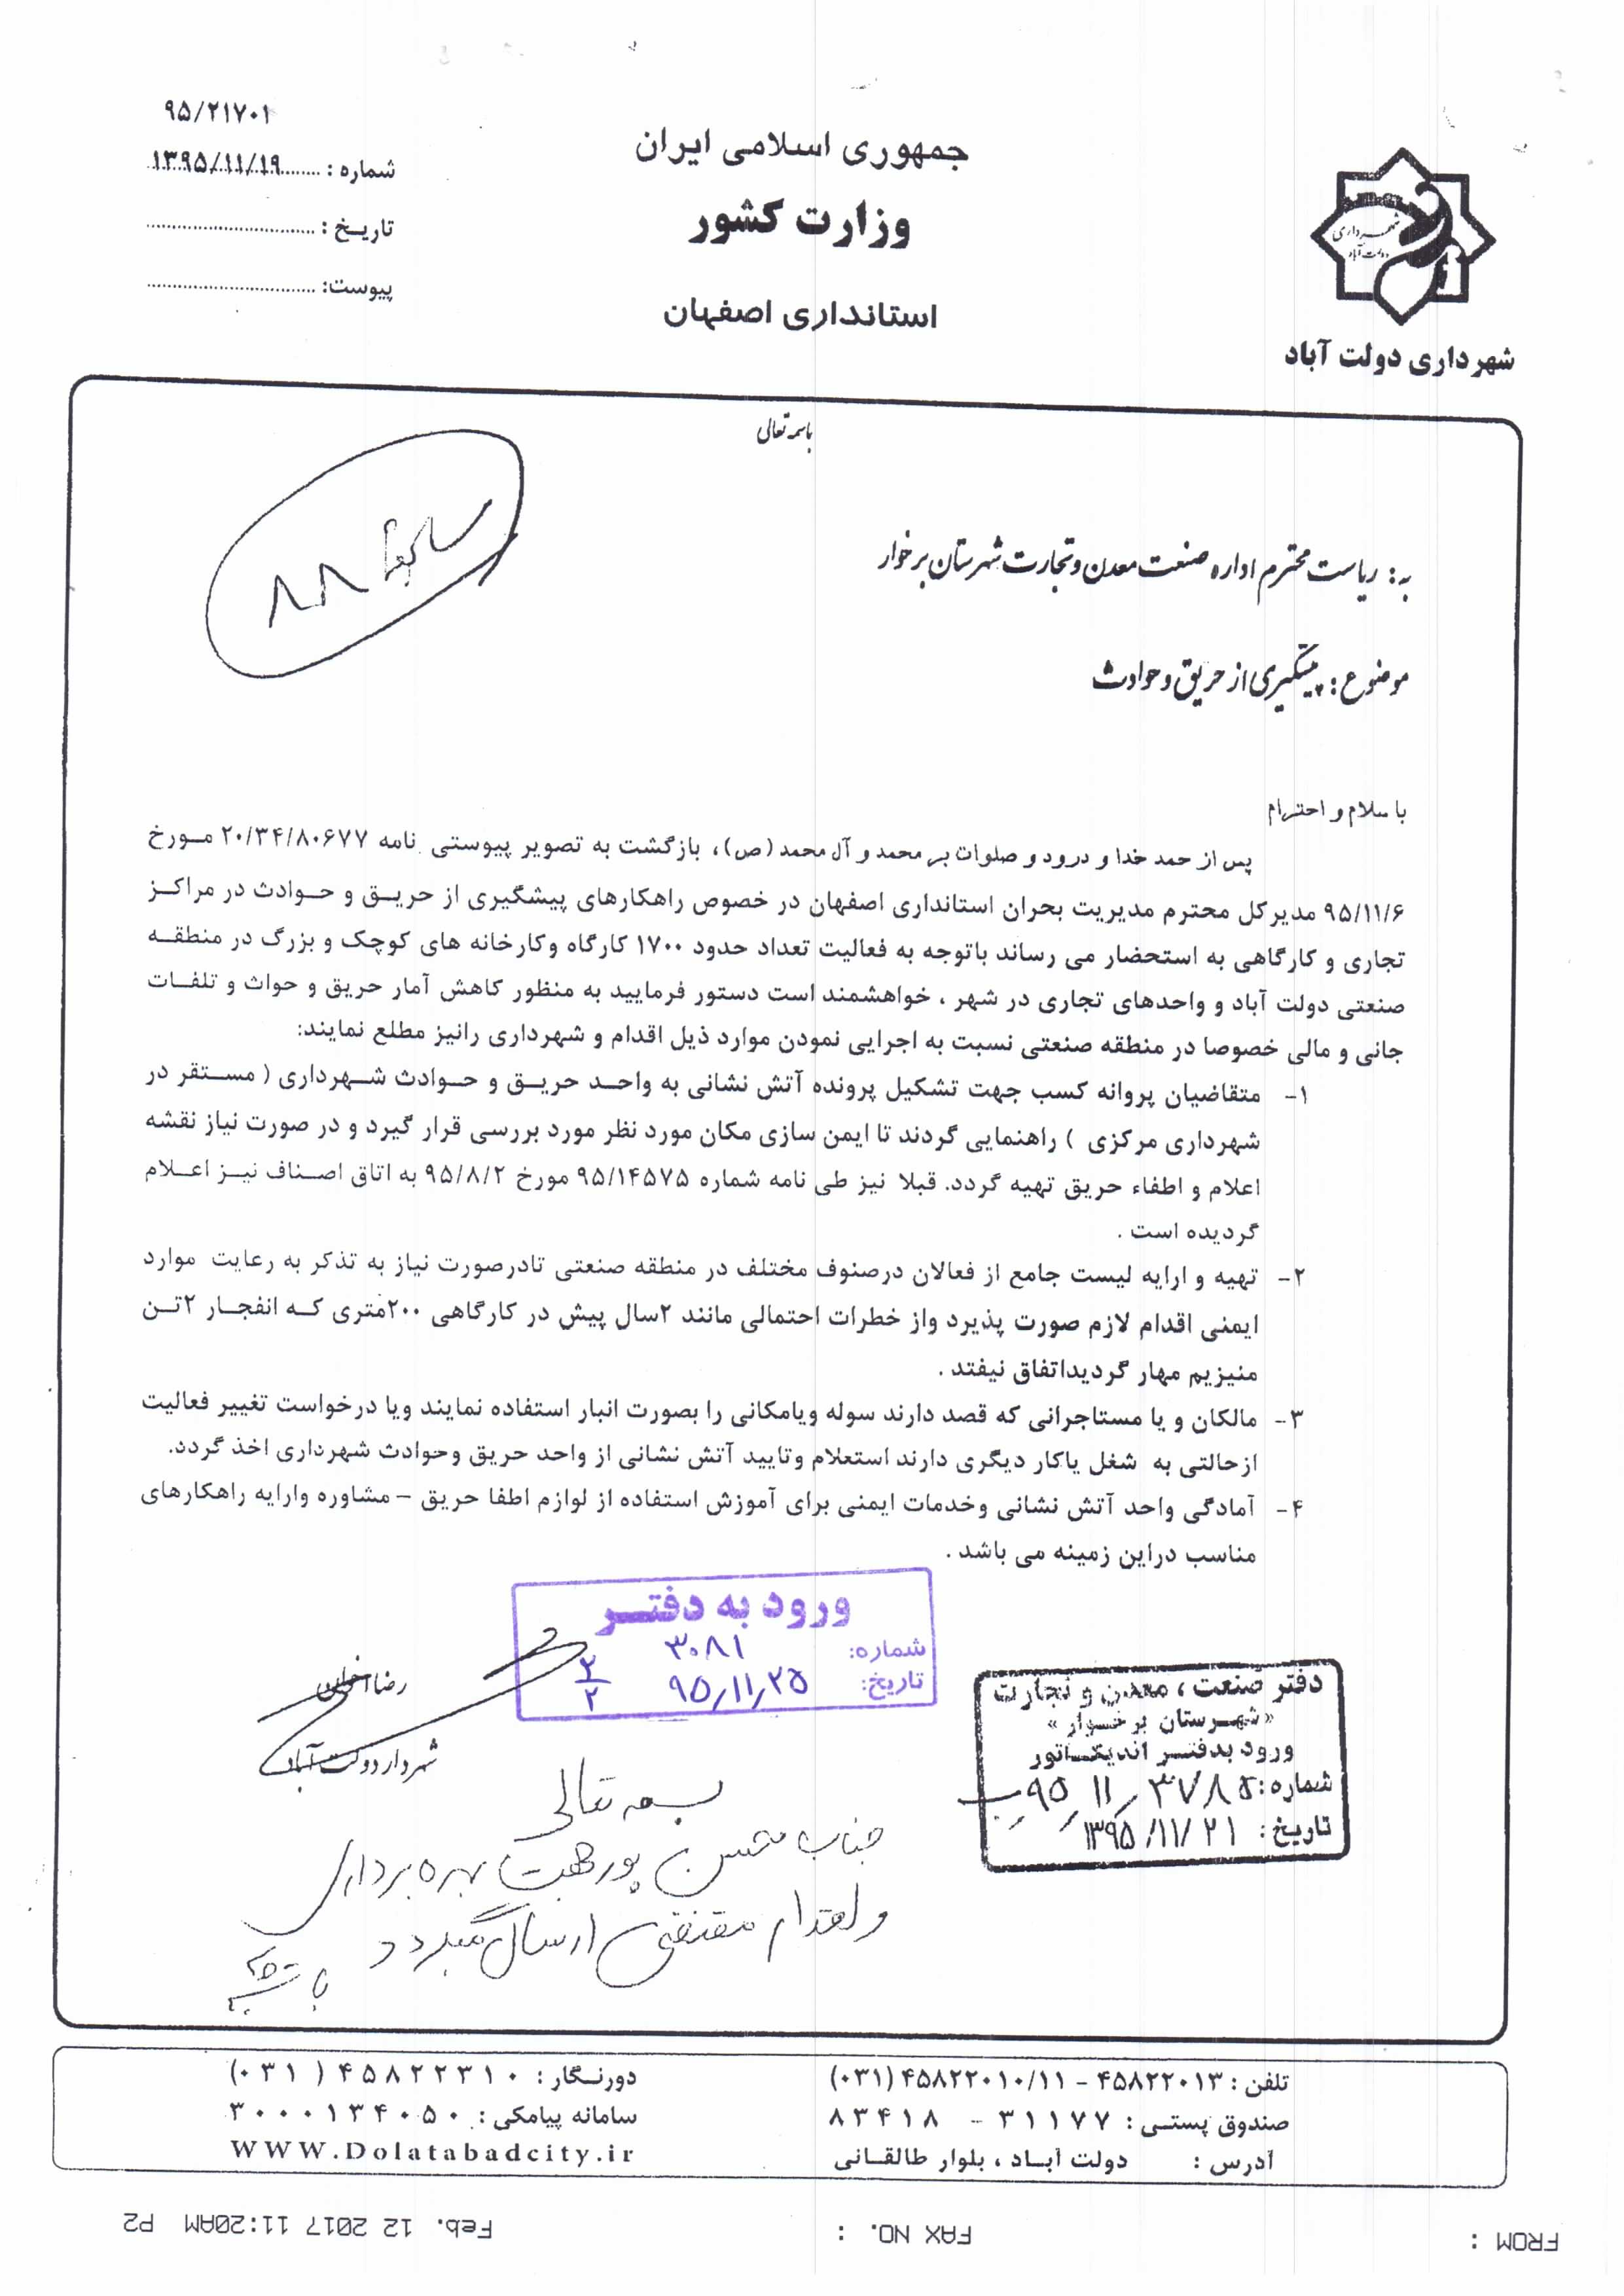 ۹۵/۲۱۷۰۱
شماره : ۱۳۹۵/۱۱/۱۹
تاریخ :
پیوست:
جمهوری اسلامی ایران
وزارت کشور
استانداری اصفهان
شهرداری
دولت آباد
شهرداری دولت آباد
باسمه تعالی
به: ریاست محترم اداره صنعت معدن و تجارت شهرستان برخوار
موضوع: پیشگیری از حریق و حوادث
با سلام و احترام
پس از حمد خدا و درود و صلوات بر محمد و آل محمد (ص)، بازگشت به تصویر پیوستی نامه ۲۰/۳۴/۸۰۶۷۷ مورخ
۹۵/۱۱/۶ مدیرکل محترم مدیریت بحران استانداری اصفهان در خصوص راهکارهای پیشگیری از حریق و حوادث در مراکز
تجاری و کارگاهی به استحضار می رساند باتوجه به فعالیت تعداد حدود ۱۷۰۰ کارگاه وکارخانه های کوچک و بزرگ در منطقه
صنعتی دولت آباد و واحدهای تجاری در شهر ، خواهشمند است دستور فرمایید به منظور کاهش آمار حریق و حواث و تلفات
جانی و مالی خصوصا در منطقه صنعتی نسبت به اجرایی نمودن موارد ذیل اقدام و شهرداری رانیز مطلع نمایند:
۱- متقاضیان پروانه کسب جهت تشکیل پرونده آتش نشانی به واحد حریق و حوادث شهرداری ( مستقر در
شهرداری مرکزی ) راهنمایی گردند تا ایمن سازی مکان مورد نظر مورد بررسی قرار گیرد و در صورت نیاز نقشه
اعلام و اطفاء حریق تهیه گردد. قبلا نیز طی نامه شماره ۹۵/۱۴۵۷۵ مورخ ۹۵/۸/۲ به اتاق اصناف نیز اعلام
گردیده است .
۲- تهیه و ارایه لیست جامع از فعالان درصنوف مختلف در منطقه صنعتی تادرصورت نیاز به تذکر به رعایت موارد
ایمنی اقدام لازم صورت پذیرد واز خطرات احتمالی مانند ۲سال پیش در کارگاهی ۲۰۰متری که انفجار ۲تن
منیزیم مهار گردیداتفاق نیفتد .
۳- مالکان و یا مستاجرانی که قصد دارند سوله ویامکانی را بصورت انبار استفاده نمایند ویا درخواست تغییر فعالیت
ازحالتی به شغل یاکار دیگری دارند استعلام وتایید آتش نشانی از واحد حریق وحوادث شهرداری اخذ گردد.
۴- آمادگی واحد آتش نشانی وخدمات ایمنی برای آموزش استفاده از لوازم اطفا حریق – مشاوره وارایه راهکارهای
مناسب دراین زمینه می باشد .
ورود به دفتر
شماره: ۳۰۸۱
تاریخ: ۹۵/۱۱/۲۵
۲/۲
رضا
شهردار دولت آباد
دفتر صنعت ، معدن و تجارت
«شهرستان برخوار»
ورود بدفتر اندیکاتور
شماره: ۳۷۸۵ ۱۱ ۹۵
تاریخ: ۱۳۹۵/۱۱/۲۱
بسمه تعالی
جناب پور جهت بهره برداری
و اقدام مقتضی ارسال میگردد
تلفن : ۴۵۸۲۲۰۱۳ - ۴۵۸۲۲۰۱۰/۱۱ (۰۳۱)
صندوق پستی : ۳۱۱۷۷ - ۸۳۴۱۸
آدرس : دولت آباد ، بلوار طالقانی
دورنگار : ۴۵۸۲۲۳۱۰ (۰۳۱)
سامانه پیامکی : ۳۰۰۰۱۳۴۰۵۰
WWW.Dolatabadcity.ir
FROM : FAX NO. : Feb. 12 2017 11:20AM P2